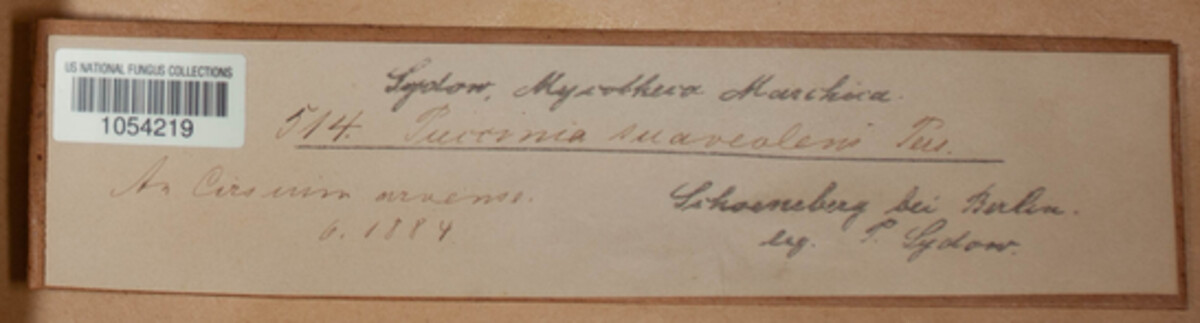 US NATIONAL FUNGUS COLLECTIONS
1054219
Sydow, Mycotheca Marchica.
514. Puccinia suaveolens Pers.
An Cirsium arvense.
6. 1884
Schoeneberg bei Berlin.
leg. P. Sydow.